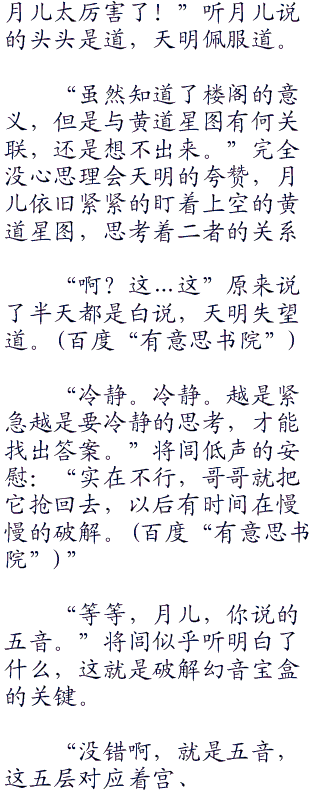 月儿太厉害了！”听月儿说
的头头是道，天明佩服道。
“虽然知道了楼阁的意
义，但是与黄道星图有何关
联，还是想不出来。”完全
没心思理会天明的夸赞，月
儿依旧紧紧的盯着上空的黄
道星图，思考着二者的关系
“啊？这…这”原来说
了半天都是白说，天明失望
道。(百度“有意思书院”)
“冷静。冷静。越是紧
急越是要冷静的思考，才能
找出答案。”将闾低声的安
慰：“实在不行，哥哥就把
它抢回去，以后有时间在慢
慢的破解。(百度“有意思书
院”)”
“等等，月儿，你说的
五音。”将闾似乎听明白了
什么，这就是破解幻音宝盒
的关键。
“没错啊，就是五音，
这五层对应着宫、